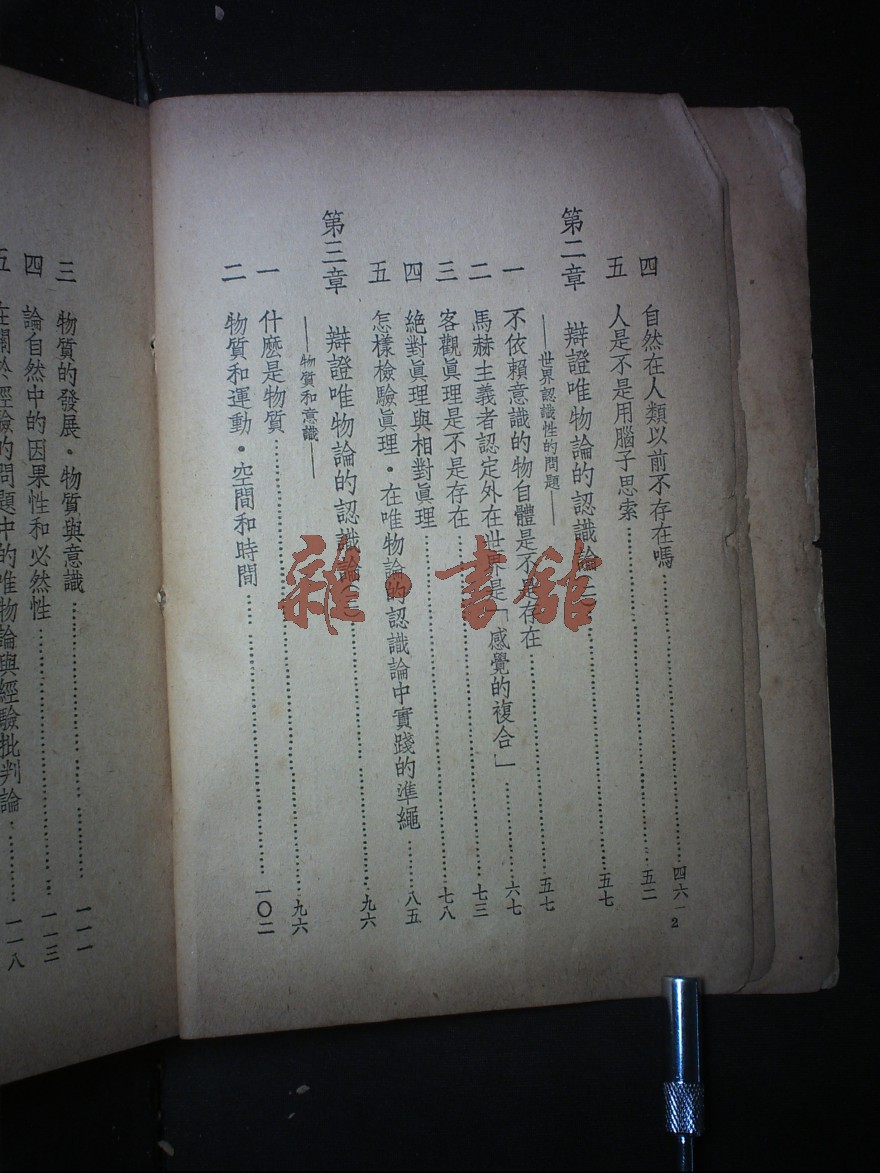 四 自然在人類以前不存在嗎…………四六
五 人是不是用腦子思索…………五二
第二章 辯證唯物論的認識論二…………五七
——世界認識性的問題——
一 不依賴意識的物自體是不是存在…………五七
二 馬赫主義者認定外在世界是「感覺的複合」…………六七
三 客觀眞理是不是存在…………七三
四 絕對眞理與相對眞理…………七八
五 怎樣檢驗眞理・在唯物論的認識論中實踐的準繩…………八五
第三章 辯證唯物論的認識論三…………九六
——物質和意識——
一 什麽是物質…………九六
二 物質和運動・空間和時間…………一〇二
2
三 物質的發展・物質與意識…………一一一
四 論自然中的因果性和必然性…………一一三
五 在關於經驗的問題中的唯物論與經驗批判論…………一一八
雜・書館